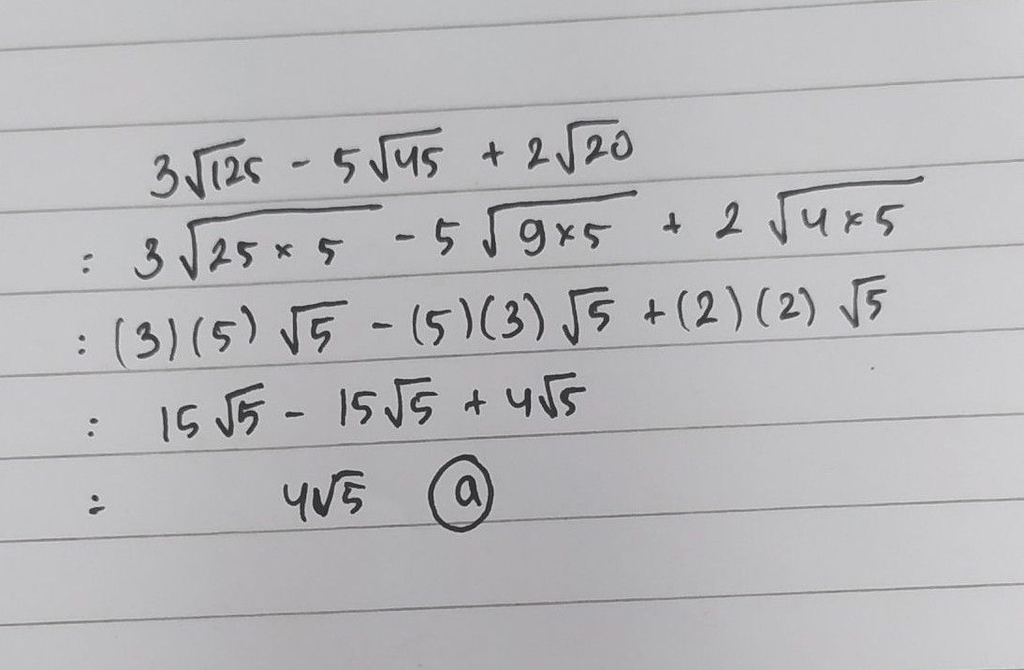 3√125 - 5√45 + 2√20
: 3√25 × 5 - 5√9×5 + 2√4×5
: (3)(5)√5 - (5)(3)√5 + (2)(2)√5
: 15√5 - 15√5 + 4√5
: 4√5 ⓐ